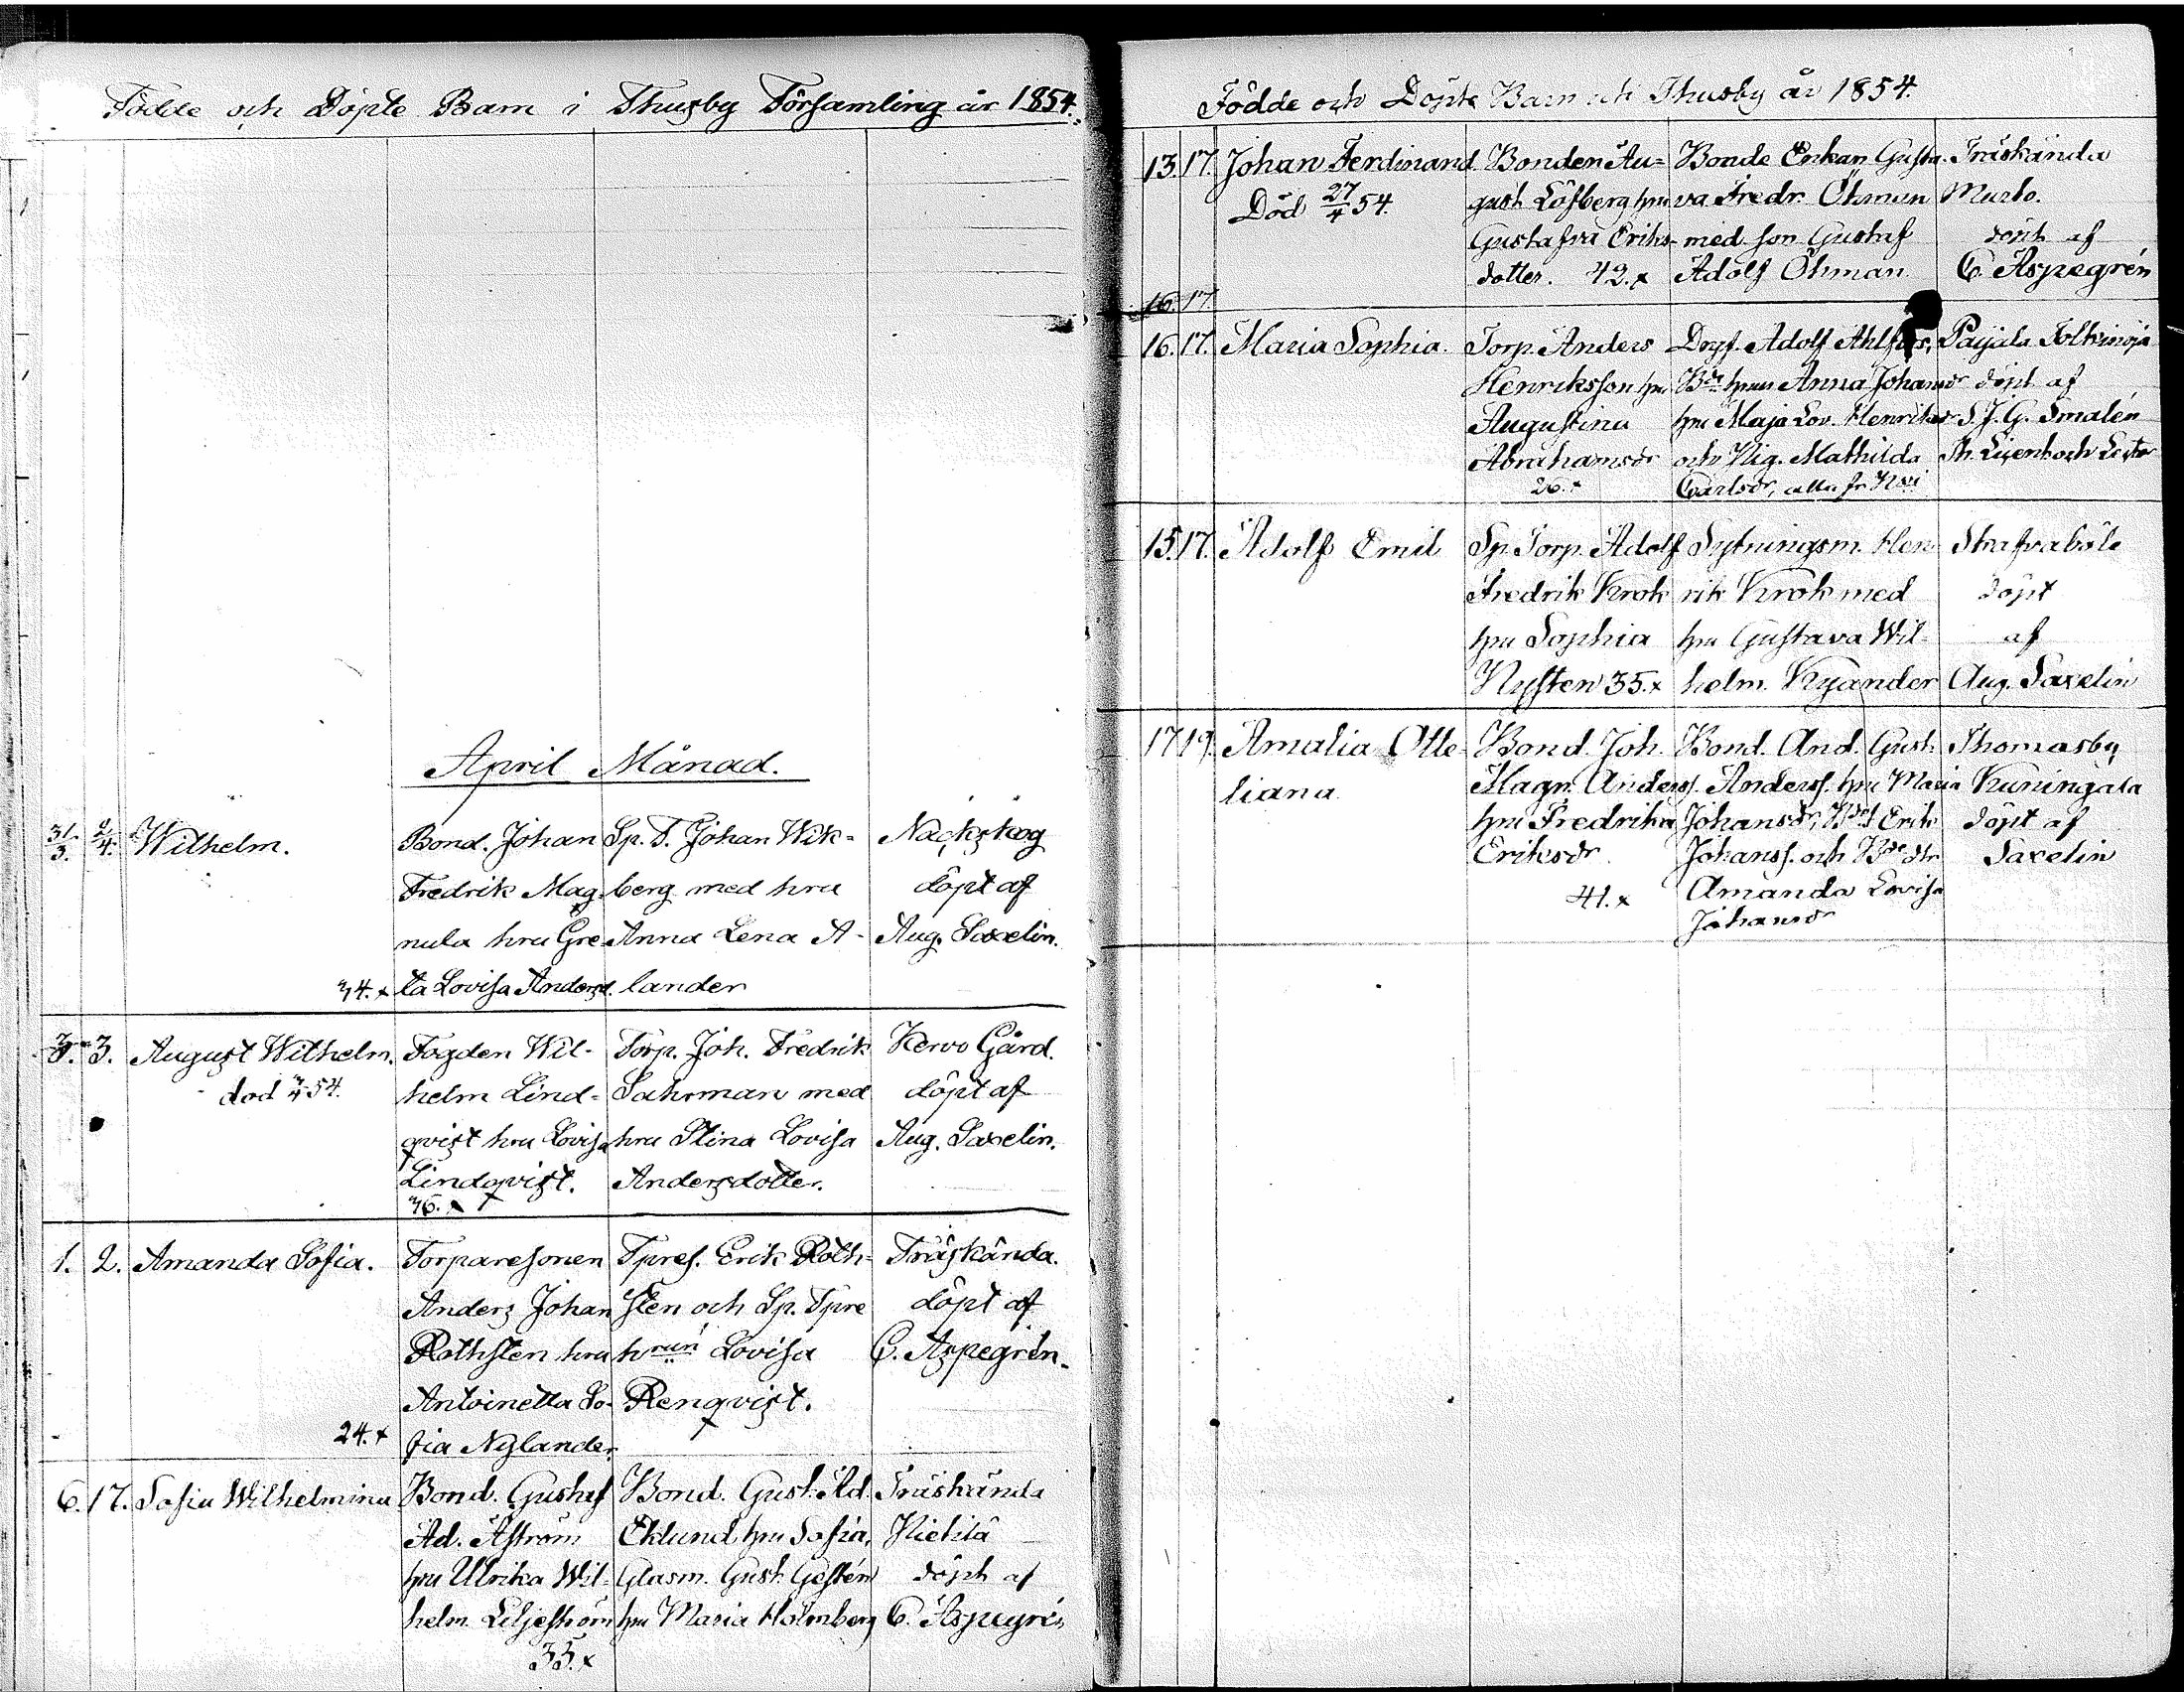 Födde och Döpte Barn i Thusby Församling år 1854.
April Månad.
31/3. 2/4. Wilhelm.
Bond. Johan
Fredrik Mag-
nula hru Gre-
34. x ta Lovisa Andersd.
Sp. T. Johan Wik-
berg med hru
Anna Lena A-
lander
Näckskog
döpt af
Aug. Saxelin.
3. 3. August Wilhelm.
död 54.
Fogden Wil-
helm Lind-
qvist hru Lovisa
Lindqvist.
36. x
Torp. Joh. Fredrik
Sahrman med
hru Stina Lovisa
Andersdotter.
Kervo Gård.
döpt af
Aug. Saxelin.
1. 2. Amanda Sofia.
Torparesonen
Anders Johan
Rothsten hru
Antoinetta So-
24. x fia Nylander.
Tpres. Erik Roth-
sten och Sp. Tpre
hrun Lovisa
Renqvist.
Träskända.
döpt af
C. Aspegrén.
6. 17. Sofia Wilhelmina
Bond. Gustaf
Ad. Åström
hru Ulrika Wil-
helm. Liljeström
35. x
Bond. Gust. Ad.
Eklund hru Sofia,
Glasm. Gust. Gestén
hru Maria Holmberg
Träskända
Hietilä
döpt af
C. Aspegrén
Födde och Döpte Barn uti Thusby år 1854.
13. 17. Johan Ferdinand
Död 27/4 54.
Bonden Au-
gust Löfberg hru
Gustafva Eriks-
dotter. 42. x
Bonde Enkan Gusta-
va Fredr. Öhman
med son Gustaf
Adolf Öhman
Träskända
döpt af
C. Aspegrén
16. 17
16. 17. Maria Sophia.
Torp. Anders
Henriksson hru
Augustina
Abrahamsdr
26. x
Adolf
hrun Anna Johansdr
hru Maja Lov. Henriksdr
och Pig. Mathilda
Carlsdr, alla fr.
Paijala
döpt af
S. J. G. Smalén
15. 17. Adolf Emil
Sp. Torp. Adolf
Fredrik Krok
hru Sophia
Nysten 35. x
Sytningsm. Hen-
rik Krok med
hru Gustava Wil-
helm. Kyander
Skafvaböle
döpt
af
Aug. Saxelin
17 19. Amalia Otte-
liana.
Bond. Joh.
Magn. Anderss.
hru Fredrika
Eriksdr
41. x
Bond. And. Gust.
Anderss. hru Maria
Johansdr, Erik
Johanss. och
Amanda Lovisa
Johansdr
Thomasby
Kuningala
döpt af
Saxelin